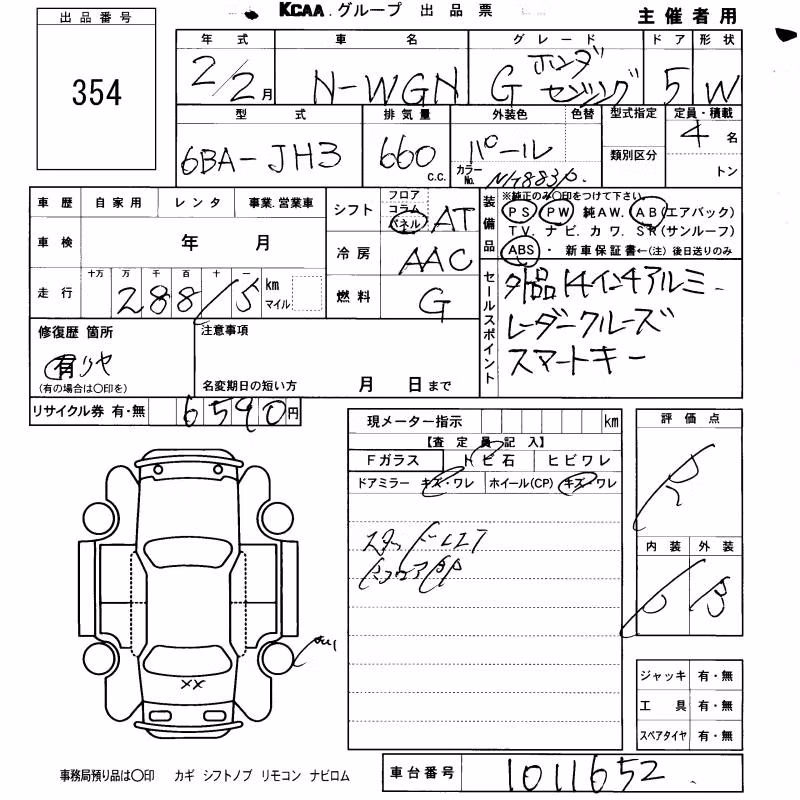 KCAA.グループ 出品票
主催者用
出品番号
354
年式 車名 グレード ドア 形状
2/2月 N-WGN G ホンダセンシング 5 W
型式 排気量 外装色 色替 型式指定 定員・積載
6BA-JH3 660c.c. パール カラーNo. NH883P. 類別区分 4名 トン
車歴 自家用 レンタ 事業.営業車
車検 年 月
走行 十万 万 千 百 十 一 288/5 km マイル
シフト フロア コラム パネル AT
冷房 AAC
燃料 G
装備品 ※純正のみ〇印をつけて下さい。
PS PW 純AW. AB(エアバック)
TV. ナビ. カワ. SR(サンルーフ)
ABS ・ 新車保証書←(注) 後日送りのみ
セールスポイント
外品14インチアルミ
レーダークルーズ
スマートキー
修復歴 箇所
有リヤ
(有の場合は〇印を)
注意事項
名変期日の短い方 月 日まで
リサイクル券 有・無 6590円
現メーター指示 km
【査定員記入】
Fガラス トビ石 ヒビワレ
ドアミラー キズ・ワレ ホイール(CP) キズ・ワレ
評価点
内装 外装
B
XX
ジャッキ 有・無
工具 有・無
スペアタイヤ 有・無
事務局預り品は〇印 カギ シフトノブ リモコン ナビロム
車台番号 1011652